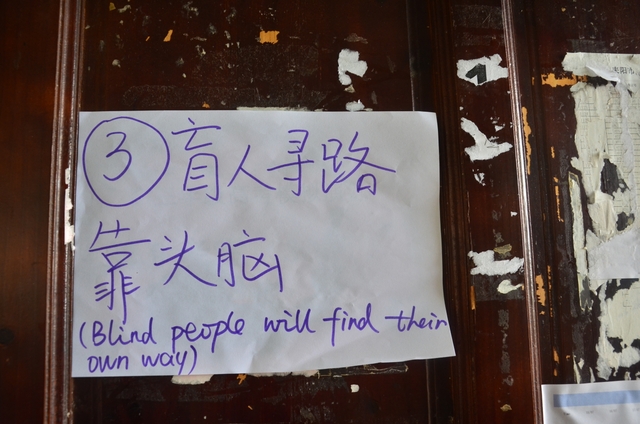 ③ 盲人寻路
靠头脑
(Blind people will find their
own way)